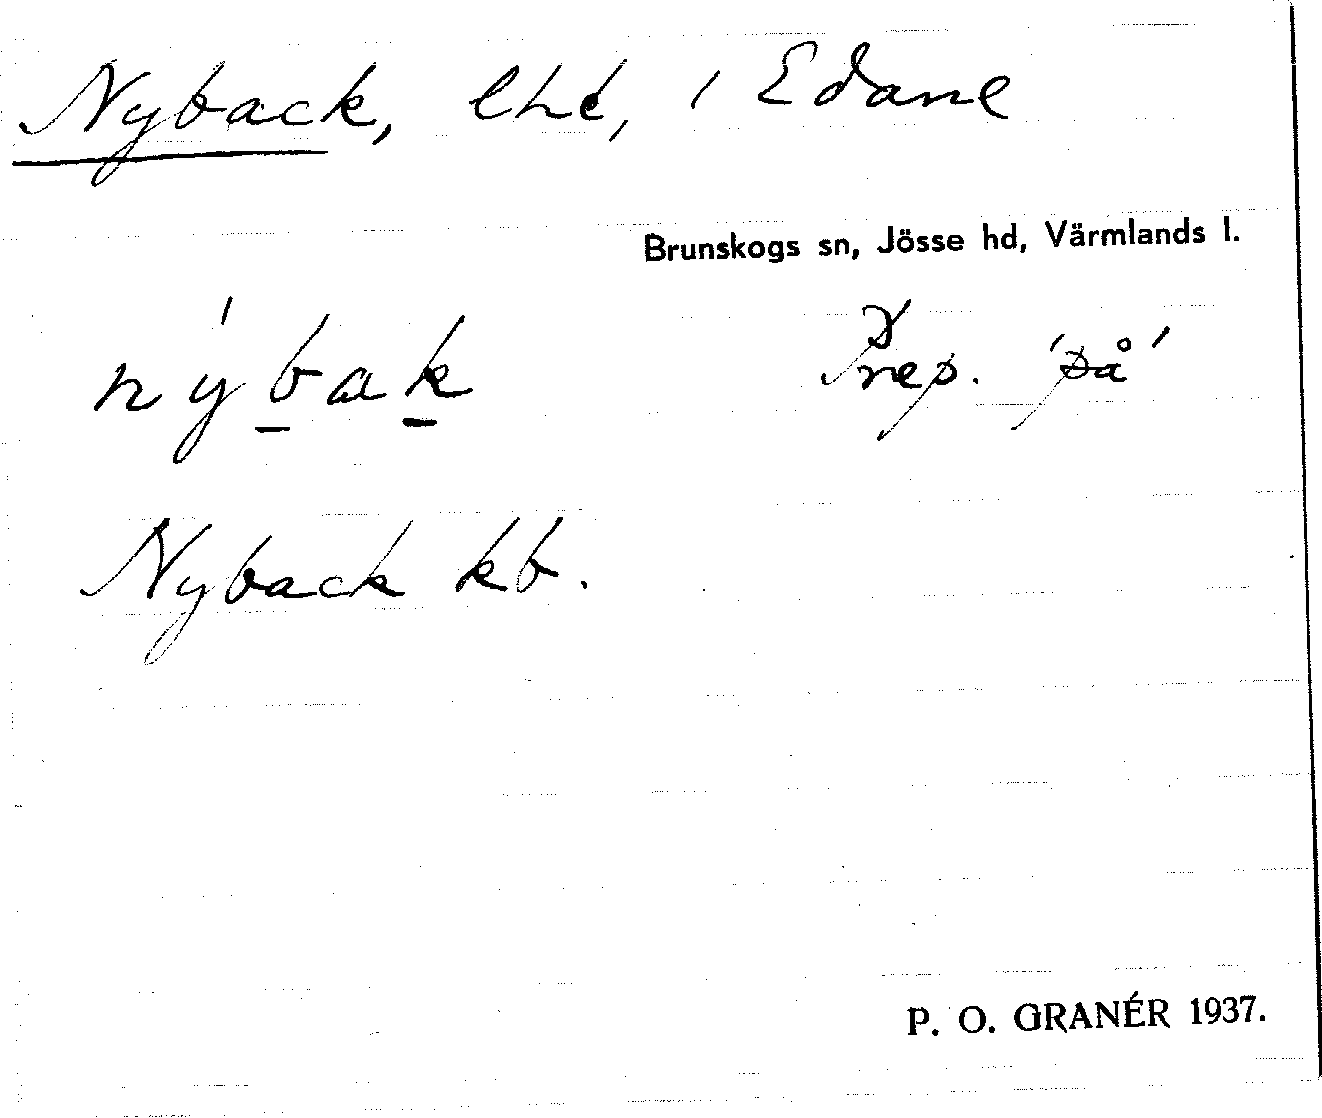 Nyback, lht, i Edane
Brunskogs sn, Jösse hd, Värmlands l.
nýbak Prep. 'på'
Nyback kb.
P. O. GRANÉR 1937.